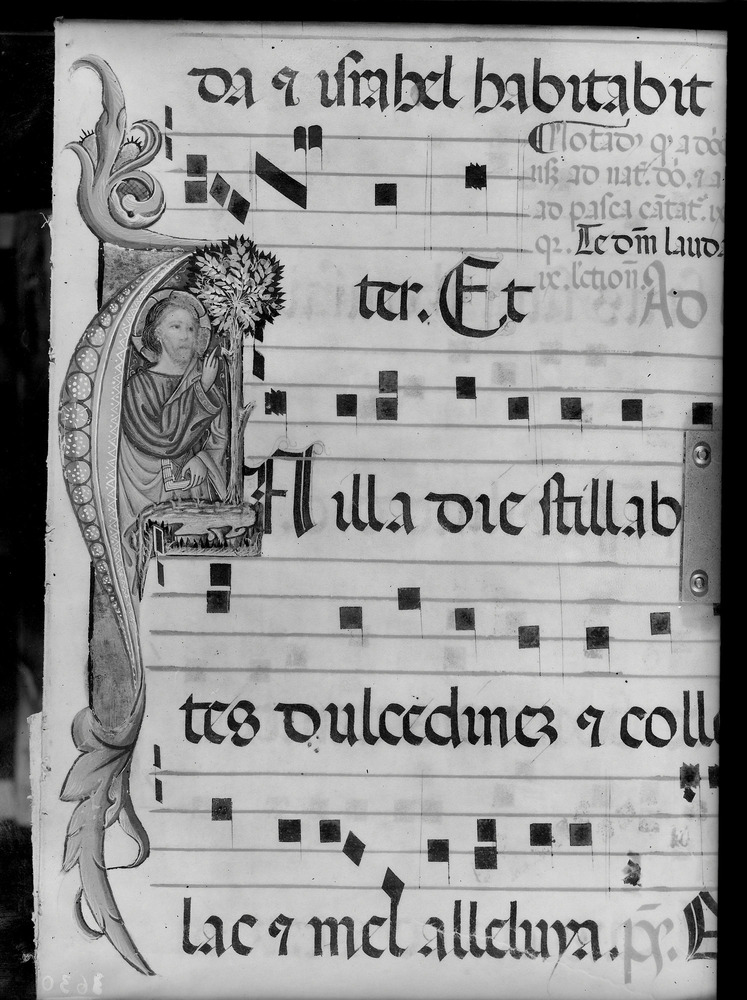 da ⁊ israhel habitabit
Notad' q' a
ad nat'. do. ⁊ a
ad pasca cātat'.
qr. Te dm̄ laud
lction.
ter. Et Ad
N illa die stillab
tes dulcedinez ⁊ coll
lac ⁊ mel alleluya. ps.
3630